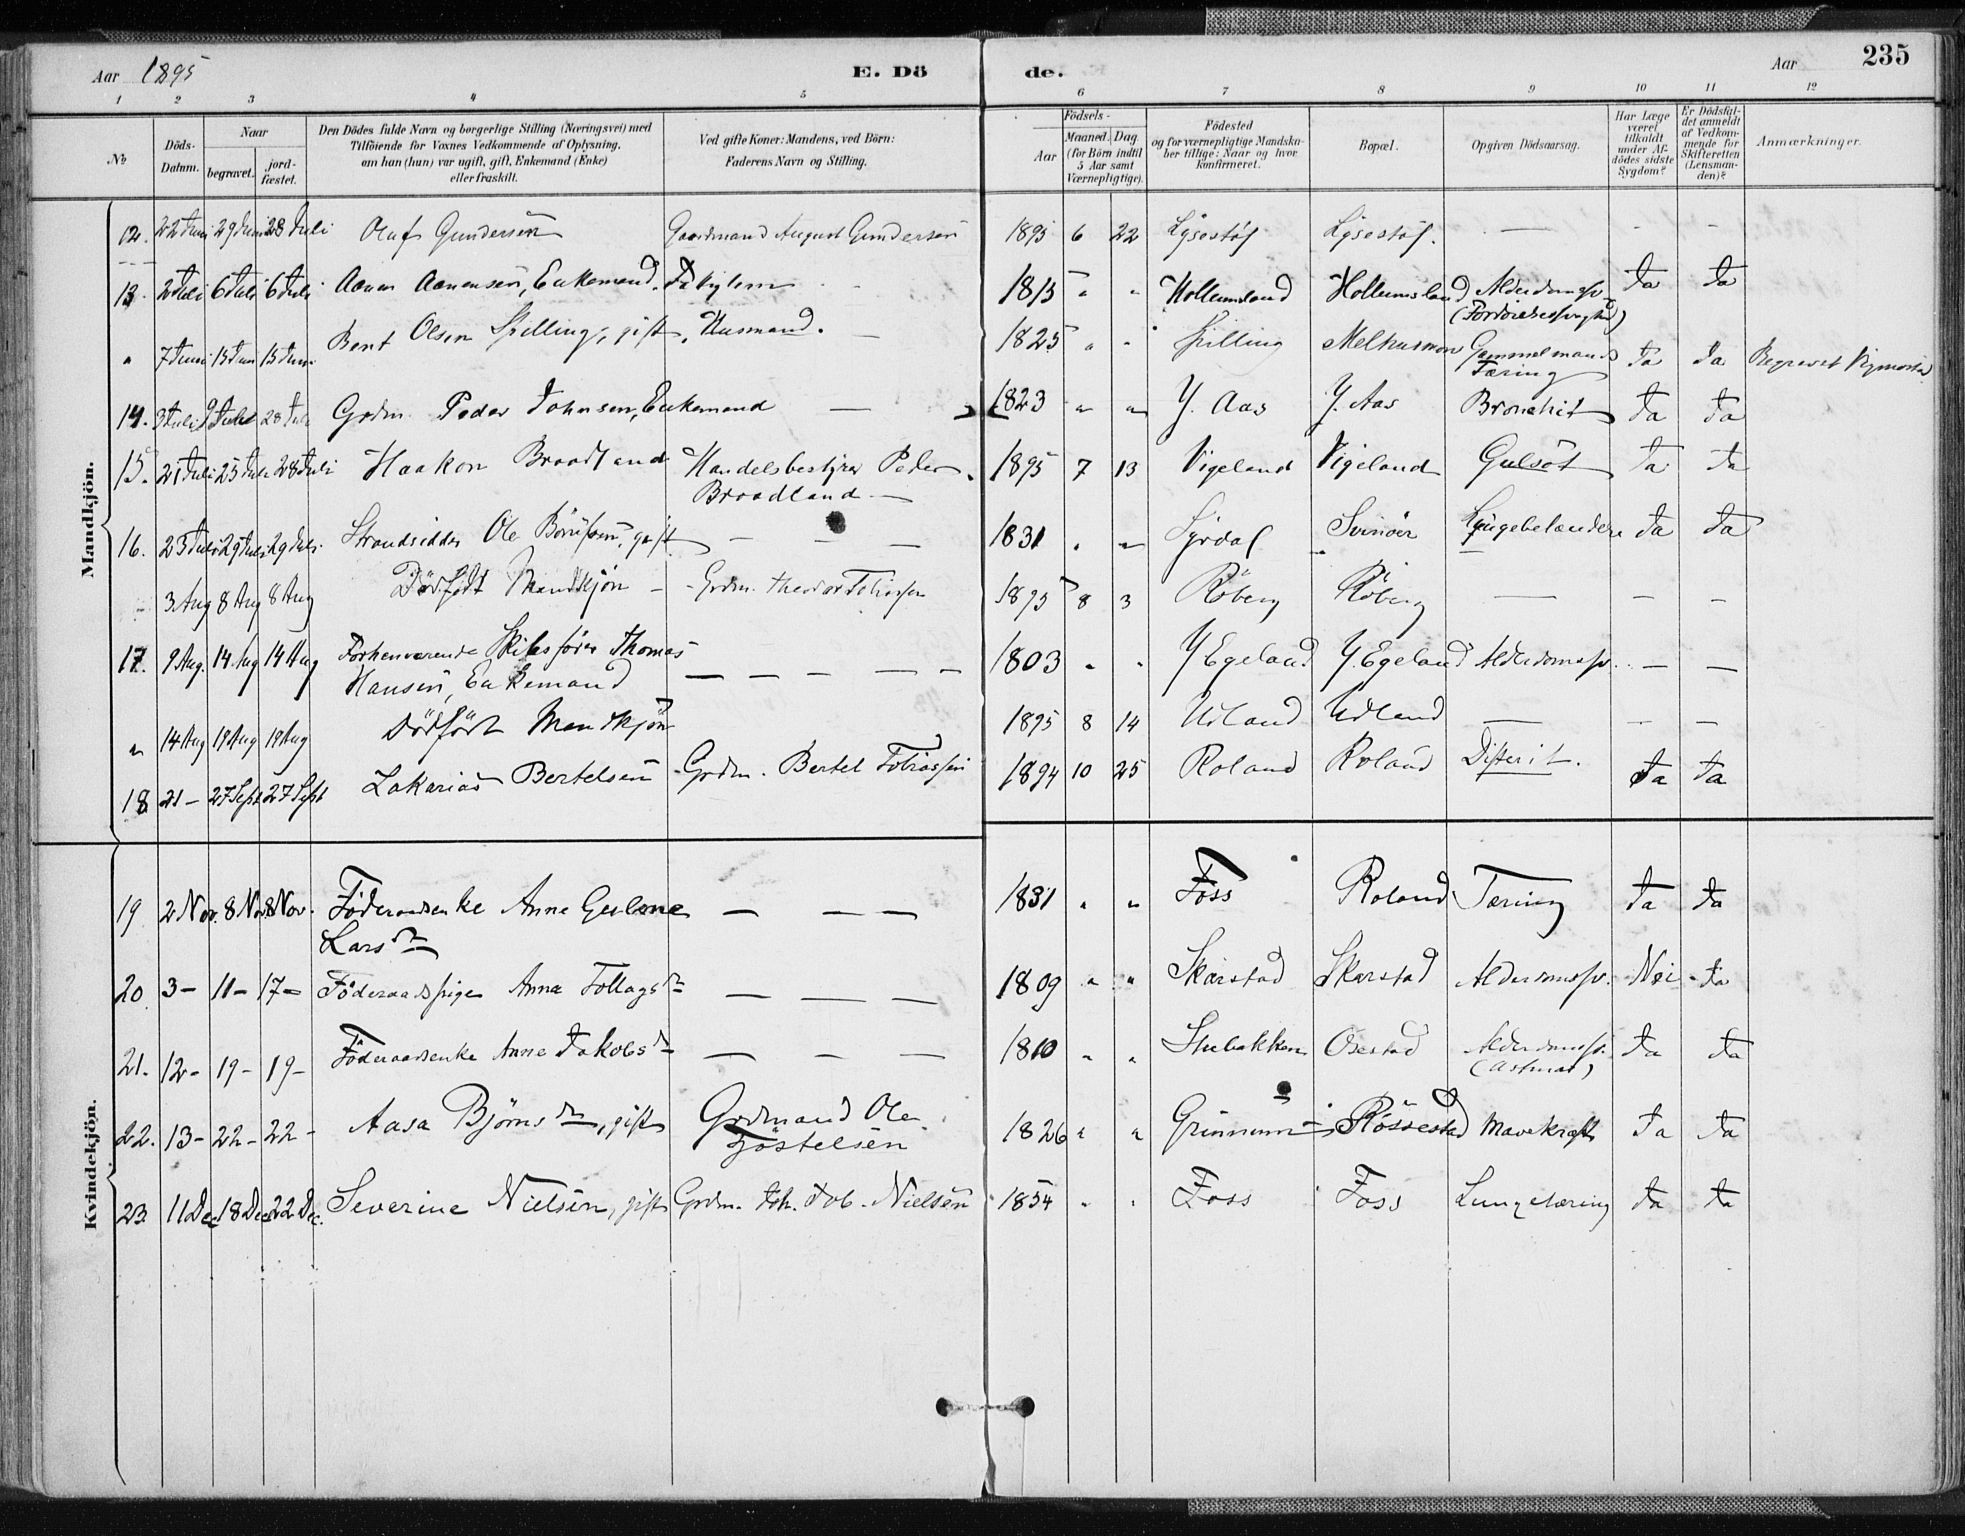 Aar 1895 E. Dö de. Aar 235
1 2 3 4 5 6 7 8 9 10 11 12
No
Döds-Datum.
Naar
begravet.
jord-fæstet.
Den Dödes fulde Navn og borgerlige Stilling (Næringsvei) med
Tilföiende for Voxnes Vedkommende af Oplysning,
om han (hun) var ugift, gift, Enkemand (Enke)
eller fraskilt.
Ved gifte Koner: Mandens, ved Börn:
Faderens Navn og Stilling.
Födsels-
Aar
Maaned. Dag
(for Börn indtil
5 Aar samt
Værnepligtige).
Födested
og for værnepligtige Mandska-
ber tillige: Naar og hvor
konfirmeret.
Bopæl.
Opgiven Dödsaarsag.
Har Læge
været
tilkaldt
under Af-
dödes sidste
Sygdom?
Er Dödsfal-
det anmeldt
af Vedkom-
mende for
Skifteretten
(Lensman-
den)?
Anmærkninger.
Mandkjön.
12. 22 Juni 29 Juni 28 Juli Olaf Gundersen Gaardmand August Gundersen 1895 6 22 Lysestöl Lysestöl. — - -
13. 2 Juli 6 Juli 6 Juli Aanen Aanensen, Enkemand. 1815 " " Hollumsland Hollumsland Alderdomssv. Ja Ja
" 7 Juni 15 Juni 15 Juni Bent Olsen Spilling, gift, Husmand. — 1825 " " Spilling Melhusmoen Gammelmands Tæring Ja Ja Begravet Vigmostad
14. 3 Juli 9 Juli 28 Juli Grdm. Peder Johnsen, Enkemand — 1823 " " Y. Aas Y. Aas Bronchit Ja Ja
15. 21 Juli 25 Juli 28 Juli Haakon Braadland Handelsbestyrer Peder
Braadland — 1895 7 13 Vigeland Vigeland Gulsot Ja Ja
16. 23 Juli 29 Juli 29 Juli Strandsidder Ole gift — — — 1831 " " Syrdal Svinöer Ja Ja
3 Aug 8 Aug 8 Aug Dödfödt Mandkjön — Grdm. Theodor Tobiassen 1895 8 3 Röberg Röberg — — —
17. 9 Aug. 14 Aug 14 Aug Forhenværende Skibsförer Thomas
Hansen, Enkemand — — — — — 1803 " " Y Egeland Y. Egeland Alderdomssv. — —
" 14 Aug 19 Aug 19 Aug Dödfödt Mandkjön 1895 8 14 Udland Udland — — —
18 21 — 27 Sept 27 Sept Zakarias Bertelsen Grdm. Bertel Tobiassen 1894 10 25 Roland Roland Difterit. Ja Ja
Kvindekjön.
19 2 Nov. 8 Nov. 8 Nov. Föderaadsenke Anne
Larsdtr — — — 1831 " " Foss Roland Tæring Ja Ja
20. 3 — 11 — 17 — Föderaadspige Anna Tollagsdtr — — — 1809 " " Skarstad Skarstad Alderdomssv. Nei Ja
21. 12 — 19 — 19 — Föderaadsenke Anne Jakobsdtr — — — 1810 " " Stubakken Osestad Alderdomssv.
(Astma) Ja Ja
22. 13 — 22 — 22 — Aasa Björnsdtr, gift Grdmand Ole
Tjöstelsen 1826 " " Grimnum Rössestad Mavekræft Ja Ja
23. 11 Dec 18 Dec 22 Dec. Severine Nielsen, gift Grdm. Joh. Tob. Nielsen 1854 " " Foss Foss Lungetæring Ja Ja